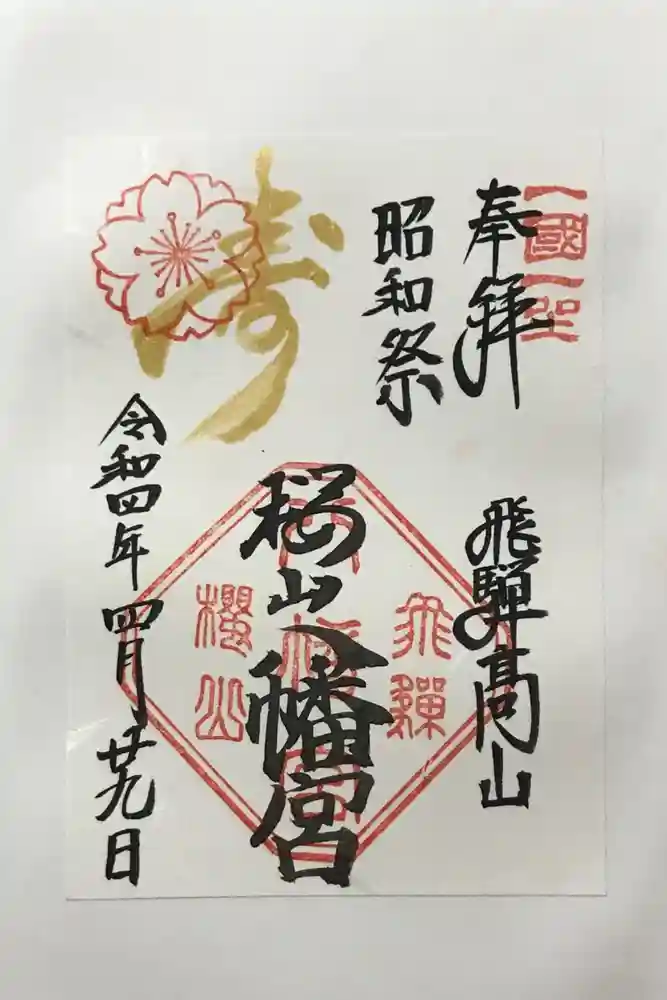 一國一社
奉拝
飛騨高山
昭和祭
桜山八幡宮
飛騨
櫻山
壽
令和四年四月廿九日